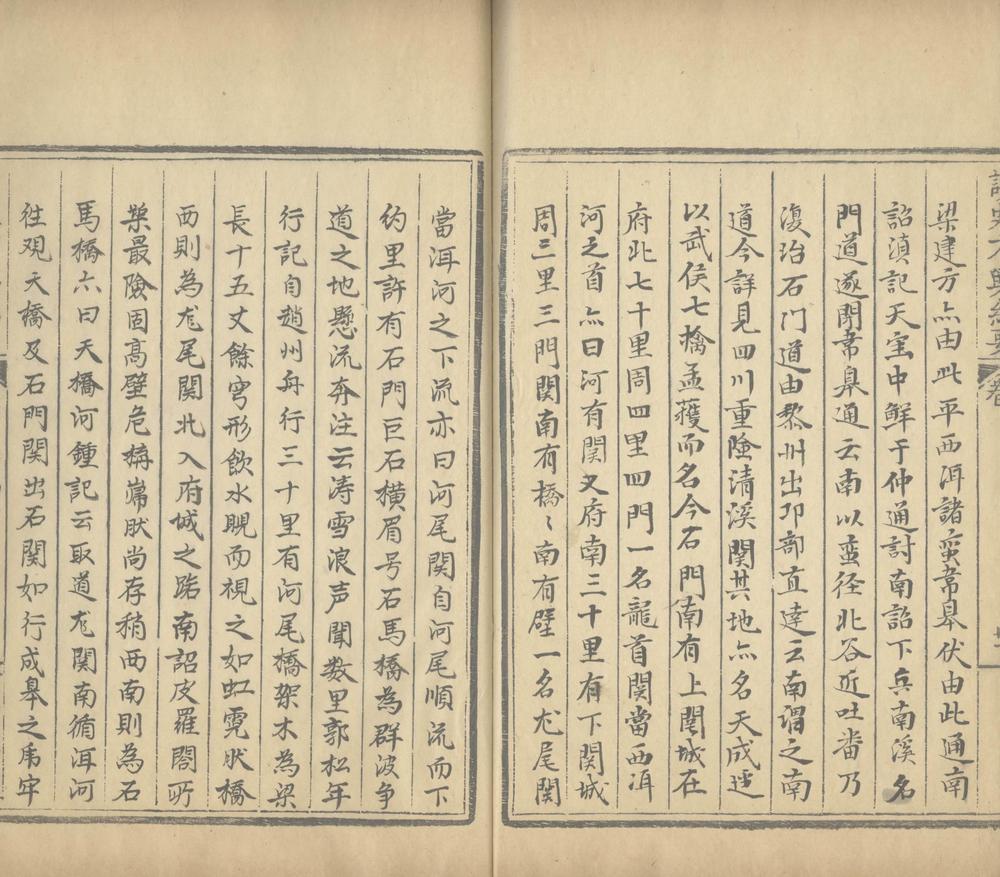 梁建方亦由此平西洱諸蛮韋皋伏由此通南
詔滇記天宝中鲜于仲通討南詔下兵南溪名
門道遂閉韋皋通云南以蛮径北谷近吐畨乃
復治石门道由黎州出邛部直達云南謂之南
道今詳見四川重險清溪関其地亦名天成
以武侯七擒孟蒦而名今石門南有上関城在
府北七十里周四里四門一名龍首関當西洱
河之首亦曰河有関又府南三十里有下関城
周三里三門関南有橋〻南有壁一名尨尾関
當洱河之下流亦曰河尾関自河尾順流而下
约里許有石門巨石横眉号石馬橋為群波争
道之地懸流奔注云涛雪浪声聞数里郭松年
行記自趙州舟行三十里有河尾橋架木為梁
長十五丈餘穹形飲水睍而視之如虹霓肰橋
西則為尨尾関北入府城之路南詔皮羅閤所
築最險固高壁危構嵬肰尚存稍西南則為石
馬橋六曰天橋河鍾記云取道尨関南循洱河
徃观天橋及石門関出石関如行成皋之虎牢